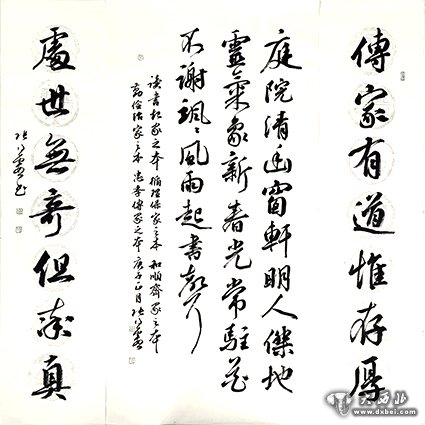 傳家有道惟存厚
庭院清幽窗軒明人傑地
靈氣象新春光常駐花
不謝颯〻風雨起書聲
讀書起家之本 循理保家之本 和順齊家之本
勤儉治家之本 忠孝傳家之本 庚子正月 張
處世無奇但率真
張
大西北
www.dxbei.com